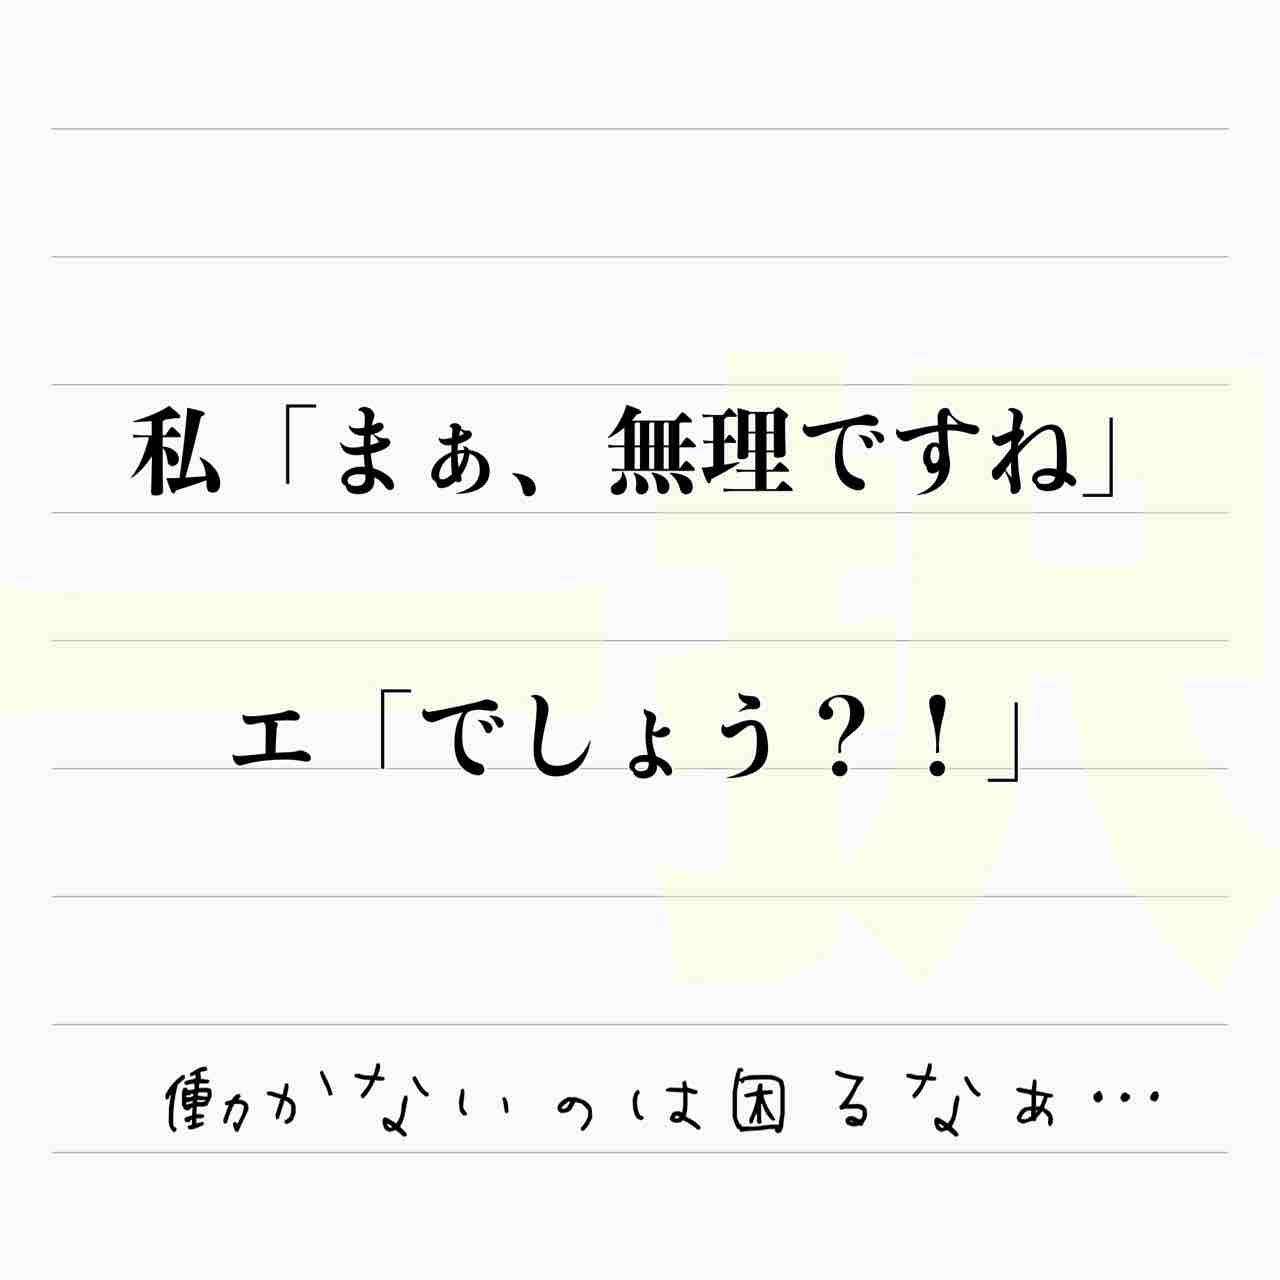 私「まぁ、無理ですね」
エ「でしょう？！」
働かないのは困るなぁ…
一択